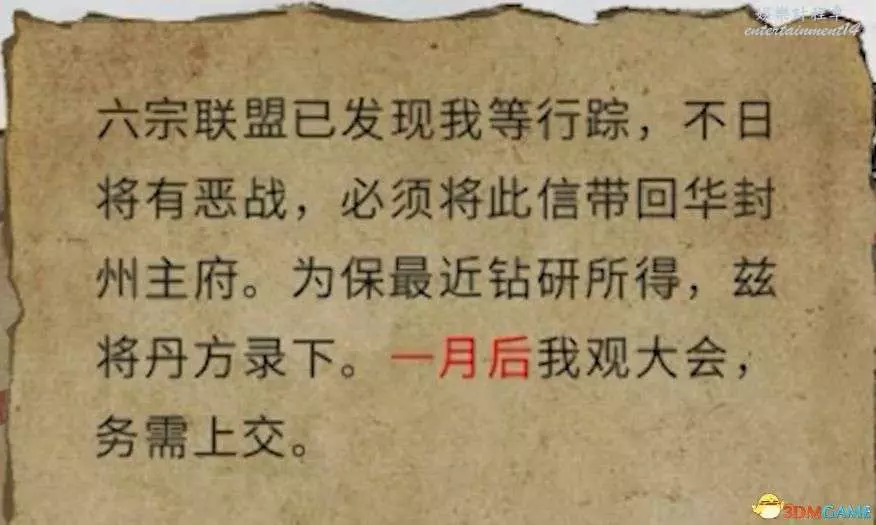 entertainment14
六宗联盟已发现我等行踪，不日
将有恶战，必须将此信带回华封
州主府。为保最近钻研所得，兹
将丹方录下。一月后我观大会，
务需上交。
3DMGAME